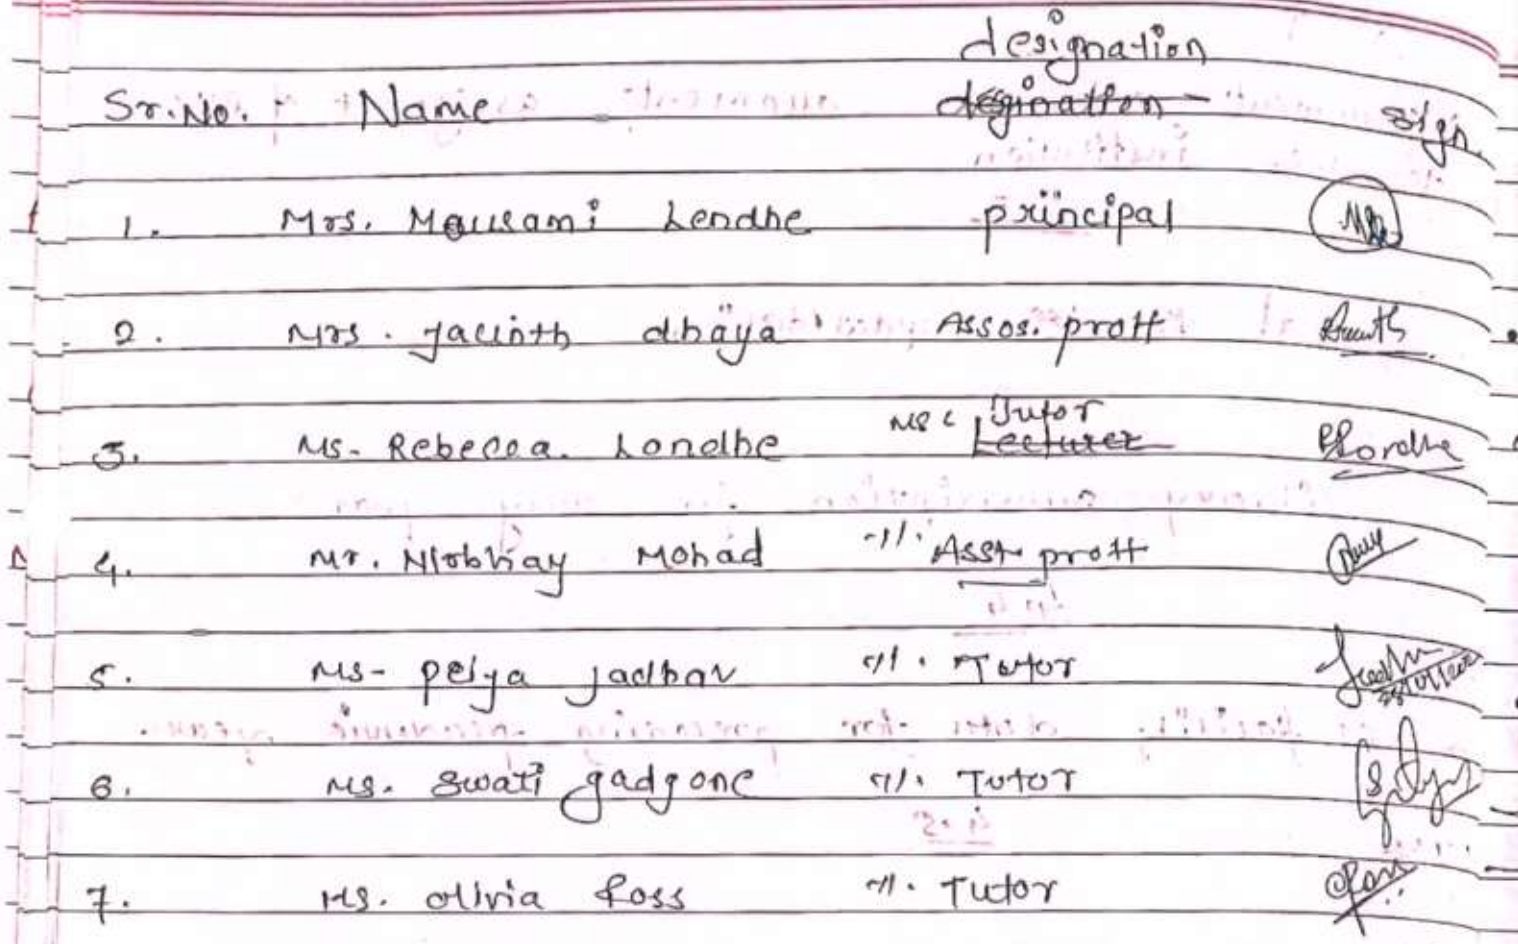 designation
Sr.No. Name degination sign
1. Mrs. Mausami Londhe principal
2. Mrs. Jacinth dhaya Assos. proff
Tutor
3. Ms. Rebecca. Londhe MSc Lecturer Rlondhe
4. Mr. Nirbhay Mohad -11. Asst proff
5. Ms- peiya jadhav -11. Tutor
6. Ms. swati gadgone -11. Tutor
7. Ms. olivia Ross -11. Tutor